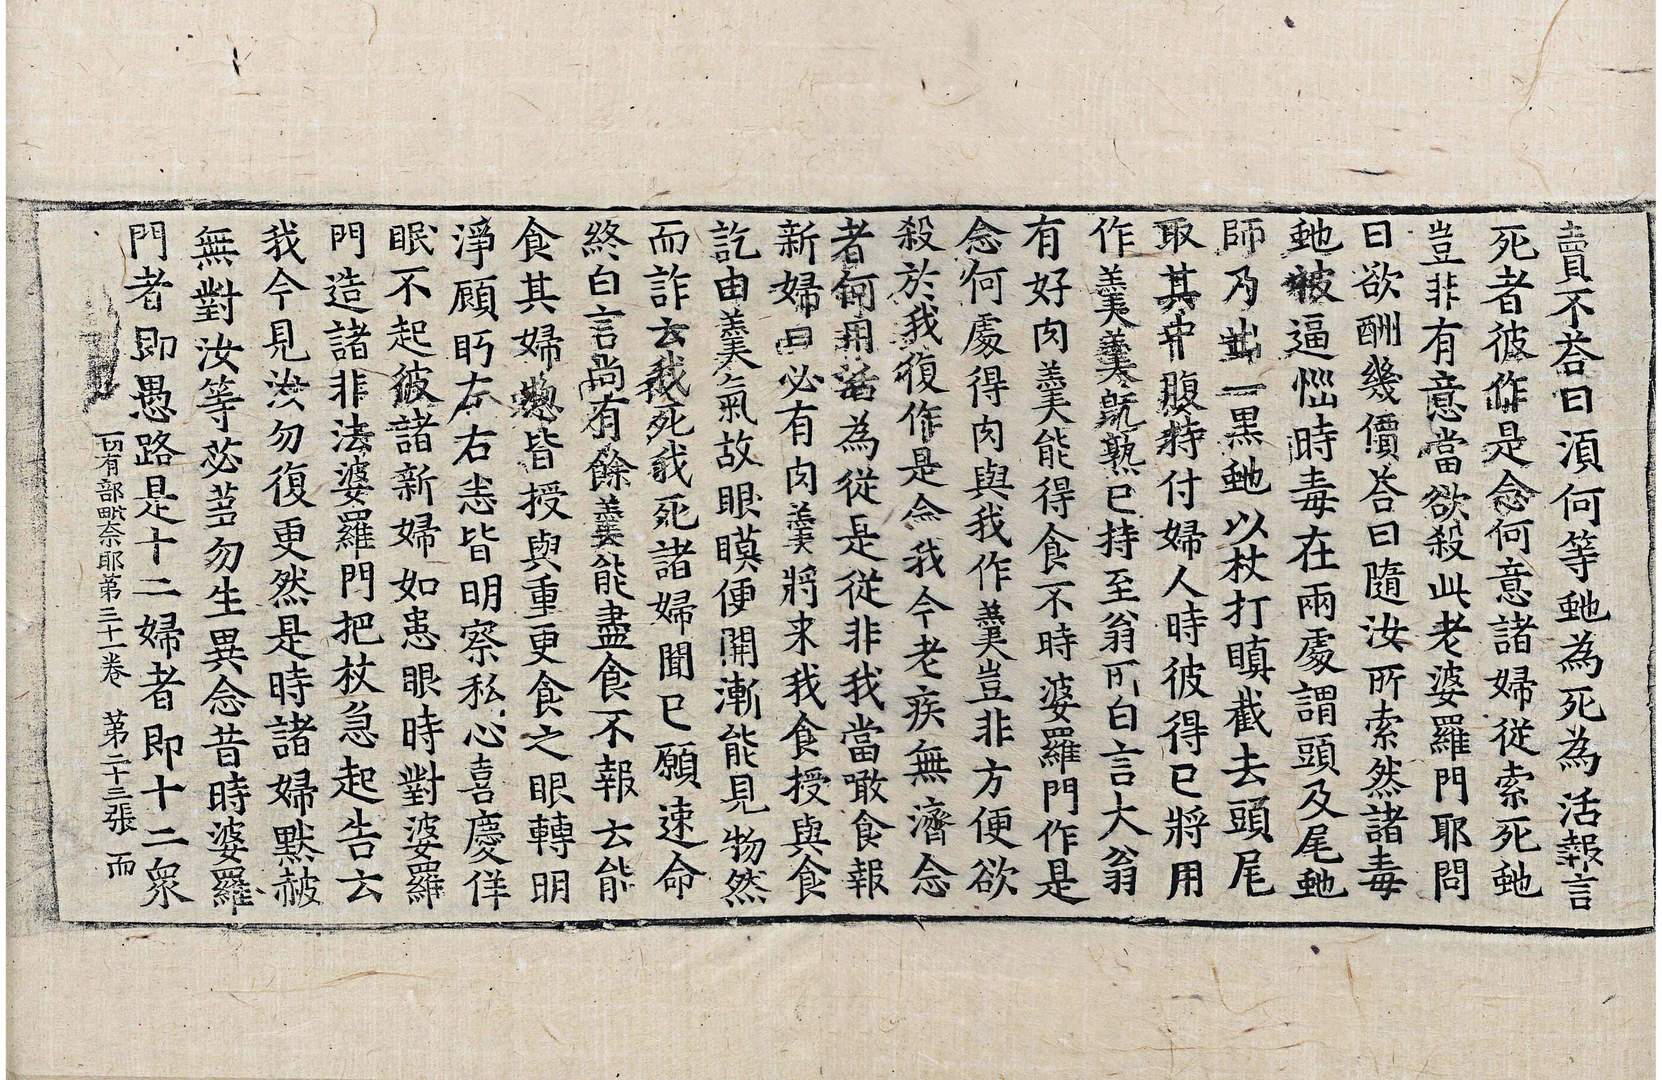 賣不荅曰湏何等虵為死為活報言
死者彼作是念何意諸婦従索死虵
豈非有意當欲殺此老婆羅門耶問
曰欲酬幾價荅曰隨汝所索然諸毒
虵被逼惱時毒在兩處謂頭及尾虵
師乃出一黒虵以杖打瞋截去頭尾
取其中腹持付婦人時彼得已將用
作羹羹旣熟已持至翁所白言大翁
有好肉羹能得食不時婆羅門作是
念何處得肉與我作羹豈非方便欲
殺於我復作是念我今老疾無濟念
者何用活為従是従非我當噉食報
新婦曰必有肉羹將来我食授與食
訖由羹氣故眼瞙便開漸能見物然
而詐云我死我死諸婦聞已願速命
終白言尚有餘羹能盡食不報云能
食其婦揔皆授與重更食之眼轉明
淨顧眄左右悉皆明察私心喜慶佯
眠不起彼諸新婦如患眼時對婆羅
門造諸非法婆羅門把杖急起告云
我今見汝勿復更然是時諸婦黙赧
無對汝等苾芻勿生異念昔時婆羅
門者即愚路是十二婦者即十二衆
一切有部毗奈耶第三十一卷 第二十三張 而